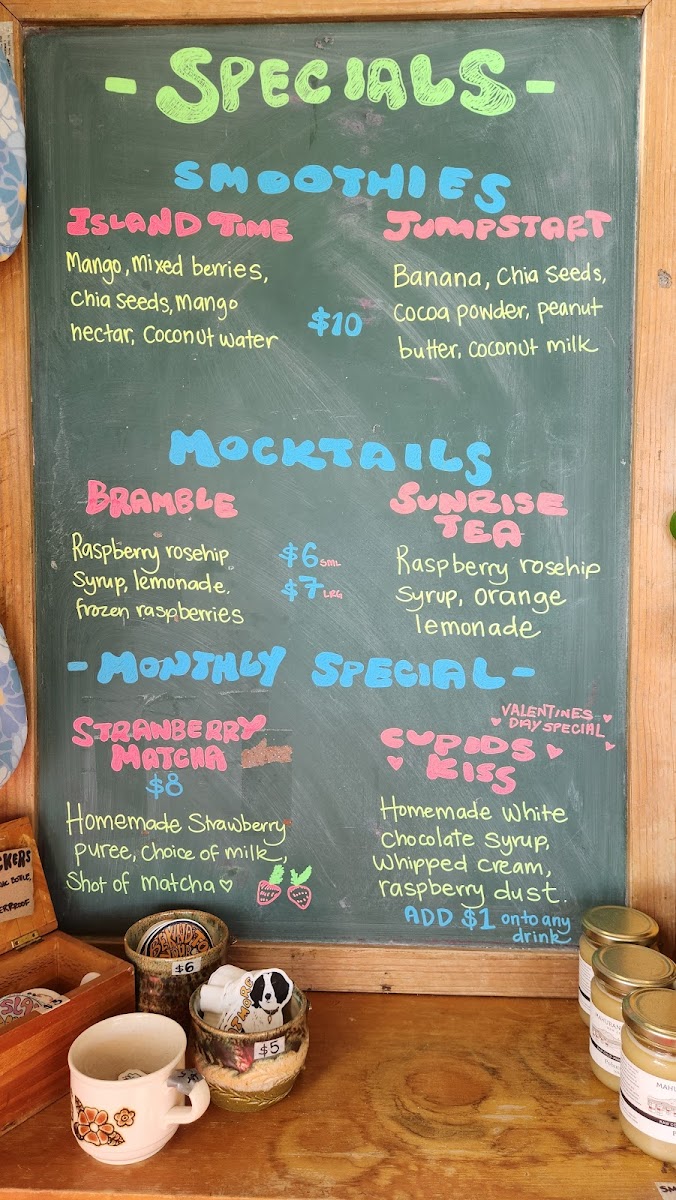 - SPECIALS -
SMOOTHIES
ISLAND TIME
Mango, mixed berries,
chia seeds, mango
nectar, coconut water
$10
JUMPSTART
Banana, chia seeds,
cocoa powder, peanut
butter, coconut milk
MOCKTAILS
BRAMBLE
Raspberry rosehip
syrup, lemonade.
frozen raspberries
$6 SML
$7 LRG
SUNRISE
TEA
Raspberry rosehip
syrup, orange
lemonade
- MONTHLY SPECIAL -
STRAWBERRY
MATCHA
$8
Homemade Strawberry
puree, choice of milk,
shot of matcha ♡
VALENTINES
♥ DAY SPECIAL ♥
CUPIDS ♥
♥ KISS
Homemade white
chocolate syrup,
whipped cream,
raspberry dust.
ADD $1 onto any
drink
$6
$5